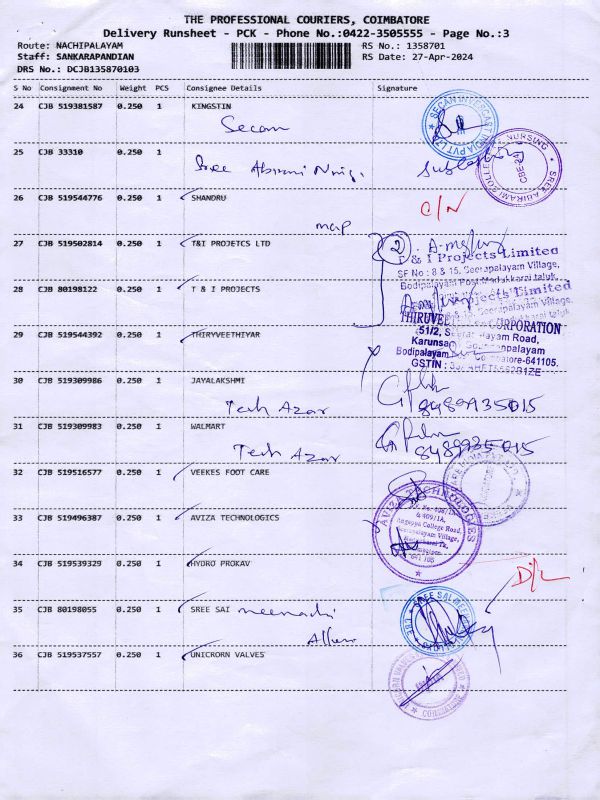 THE PROFESSIONAL COURIERS, COIMBATORE
Delivery Runsheet - PCK - Phone No.:0422-3505555 - Page No.:3
Route: NACHIPALAYAM
RS No.: 1358701
Staff: SANKARAPANDIAN
RS Date: 27-Apr-2024
DRS No.: DCJB135870103
S No Consignment No Weight PCS Consignee Details Signature
24 CJB 519381587 0.250 1 KINGSTIN
Secam
SECAN INVERCAST INDIA PVT LTD
25 CJB 33310 0.250 1
Sree Abirami
SREE ABIRAMI COLLEGE OF NURSING
CBE
26 CJB 519544776 0.250 1 SHANDRU
C/N
map
27 CJB 519502814 0.250 1 T&I PROJETCS LTD
2
T & I Projects Limited
SF No : 8 & 15, Seerapalayam Village,
Bodipalayam Post Madukkarai taluk,
28 CJB 80198122 0.250 1 T & I PROJECTS
Projects Limited
Seerapalayam Village,
29 CJB 519544392 0.250 1 THIRYVEETHIYAR
CORPORATION
51/2, Road,
Bodipalayam
Coimbatore-641105.
GSTIN :
30 CJB 519309986 0.250 1 JAYALAKSHMI
Tech Azar
8489935015
31 CJB 519309983 0.250 1 WALMART
Tech Azar
8489935015
32 CJB 519516577 0.250 1 VEEKES FOOT CARE
33 CJB 519496387 0.250 1 AVIZA TECHNOLOGICS
AVIZA TECHNOLOGIES
& 409/1A,
College Road,
Seerapalayam Village,
641 105
34 CJB 519539329 0.250 1 HYDRO PROKAV
D/L
35 CJB 80198055 0.250 1 SREE SAI meenachi
SREE SAI
36 CJB 519537557 0.250 1 UNICRORN VALVES